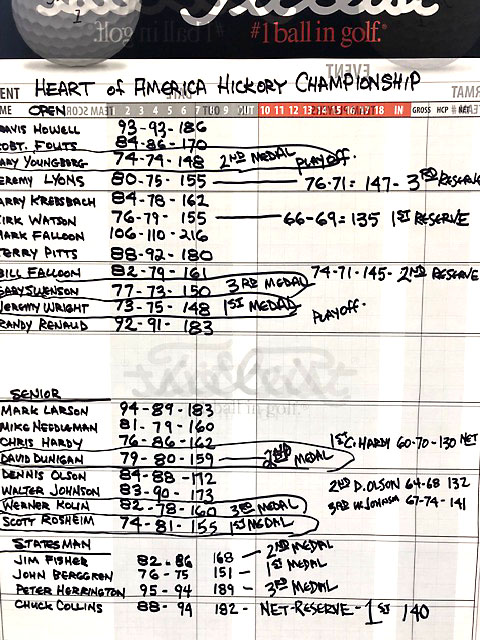 Titleist
#1 ball in golf.
HEART of AMERICA HICKORY CHAMPIONSHIP
OPEN 2 3 4 5 6 7 8 9 OUT 10 11 12 13 14 15 16 17 18 IN GROSS HCP NET
DAVIS HOWELL 93-93-186
ROBT. FOUTS 84-86-170
GARY YOUNGBERG 74-74-148 2ND MEDAL PLAYOFF.
JEREMY LYONS 80-75-155 76-71=147-3RD RESERVE
LARRY KREBSBACH 84-78-162
KIRK WATSON 76-79-155 66-69=135 1ST RESERVE
MARK FALLOON 106-110-216
TERRY PITTS 88-92-180
BILL FALLOON 82-79-161 74-71-145-2ND RESERVE
GARY SWENSON 77-73-150 3RD MEDAL
JEREMY WRIGHT 73-75-148 1ST MEDAL PLAYOFF.
RANDY RENAUD 92-91-183
SENIOR
MARK LARSON 94-89-183
MIKE NEEDLEMAN 81-79-160
CHRIS HARDY 76-86-162 1ST C. HARDY 60-70-130 NET
DAVID DUNIGAN 79-80-159 2ND MEDAL
DENNIS OLSON 84-88-172 2ND D. OLSON 64-68 132
WALTER JOHNSON 83-90-173 3RD W. JOHNSON 67-74-141
WERNER KOLLN 82-78-160 3RD MEDAL
SCOTT ROSHEIM 74-81-155 1ST MEDAL
STATESMAN
JIM FISHER 82-86 168 - 2ND MEDAL
JOHN BERGGREN 76-75 151 - 1ST MEDAL
PETER HERRINGTON 95-94 189 - 3RD MEDAL
CHUCK COLLINS 88-94 182- NET-RESERVE-1ST 140